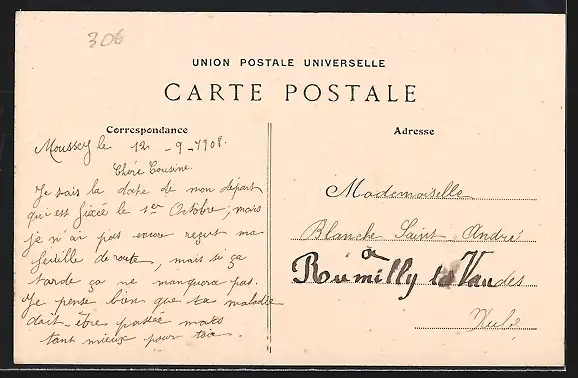 306
UNION POSTALE UNIVERSELLE
CARTE POSTALE
Correspondance
Moussey le 12 - 9 - 1908.
Chère Cousine.
Je sais la date de mon départ
qui est fixée le 1er Octobre, mais
je n'ai pas encore reçut ma
feuille de route, mais si ça
tarde ça ne manquera pas.
Je pense bien que ta maladie
doit-être passée mais
tant mieux pour toi.
Adresse
Mademoiselle
Blanche Saint André
à
Rumilly les Vaudes
Aube